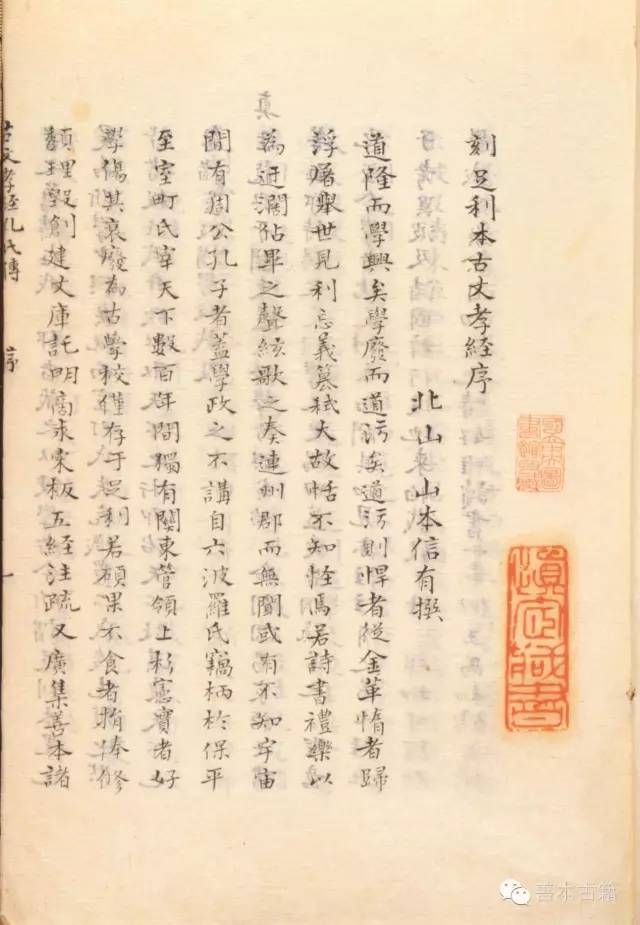 刻足利本古文孝經序
北山 山本信有撰
道隆而學興矣學廢而道污矣道污則悍者從金革惰者歸
浮屠舉世見利忘義篡弒大故恬不知怪焉若詩書禮樂以
為迂濶佔畢之聲絃歌之奏連州郡而無聞或有不知宇宙
間有周公孔子者蓋學政之不講自六波羅氏竊柄於保平
至室町氏宰天下數百年間獨有關東管領上杉憲實者好
學傷其衰廢為古學校僅存于足利若碩果不食者捐俸修
頹理毀創建文庫託明商求宋板五經注疏又廣集善本諸
古文孝經孔氏傳 序 一
善本古籍